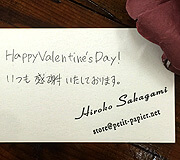 HappyValentine'sDay!
いつも 感謝 いたしております。
Hiroko Sakagami
store@petit-papier.net